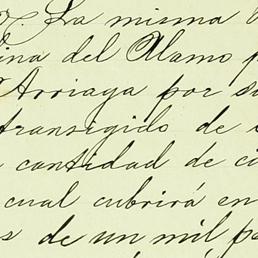 La misma
ina del Alamo p
Arriaga por su
transigido de
cantidad de ci
cual cubrirá en
s de un mil pe